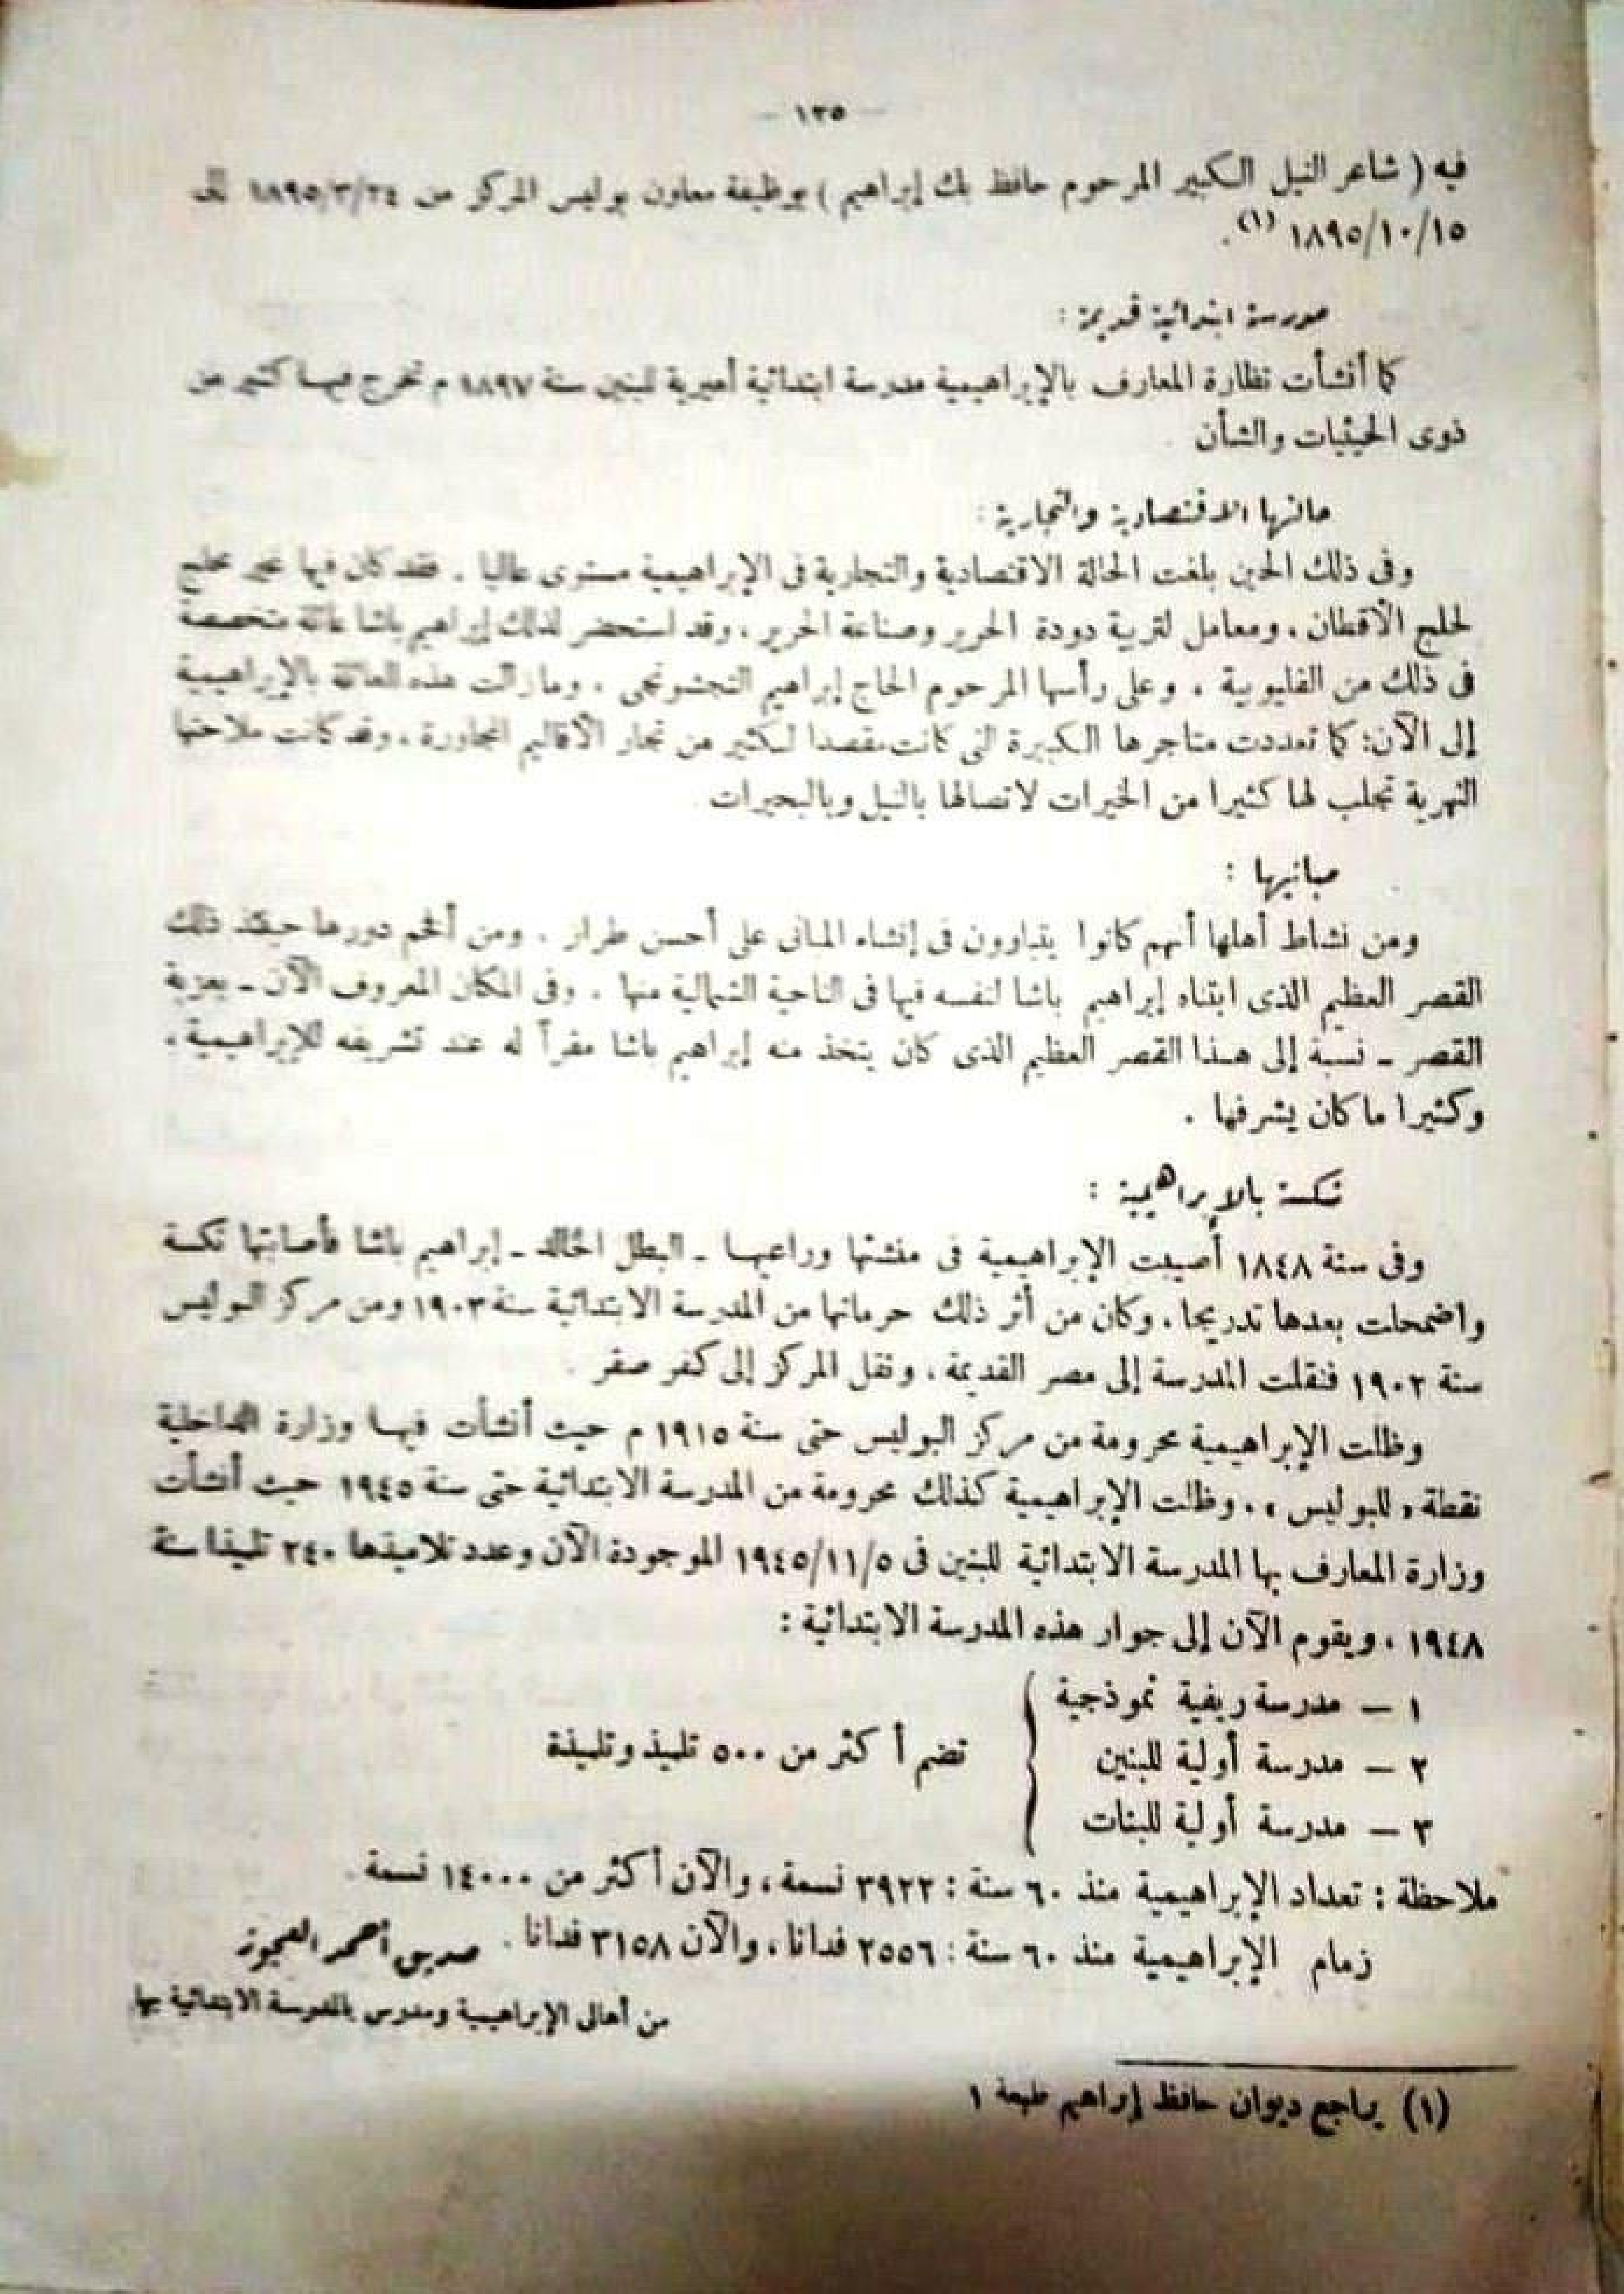 — ١٣٥ —
فيه ( شاعر النيل الكبير المرحوم حافظ بك إبراهيم ) بوظيفة معاون بوليس المركز من ١٨٩٥/٣/٢٤ إلى
١٨٩٥/١٠/١٥ (١) .
مدرسة ابتدائية قديمة :
كما أنشأت نظارة المعارف بالإبراهيمية مدرسة ابتدائية أميرية للبنين سنة ١٨٩٧ م تخرج فيها كثير من
ذوى الحيثيات والشأن
حالتها الاقتصادية والتجارية :
وفى ذلك الحين بلغت الحالة الاقتصادية والتجارية فى الإبراهيمية مستوى عاليا . فقد كان فيها غير محلج
لحلج الأقطان ، ومعامل لتربية دودة الحرير وصناعة الحرير ، وقد استحضر لذلك إبراهيم باشا عائلة متخصصة
فى ذلك من القليوبية ، وعلى رأسها المرحوم الحاج إبراهيم ، ومازالت هذه العائلة بالإبراهيمية
إلى الآن: كما تعددت متاجرها الكبيرة التى كانت مقصدا لكثير من تجار الأقاليم المجاورة ، وقد كانت ملاحتها
النهرية تجلب لها كثيرا من الخيرات لاتصالها بالنيل وبالبحيرات
مبانيها :
ومن نشاط أهلها أنهم كانوا يتبارون فى إنشاء المبانى على أحسن طراز . ومن أفخم دورها حينئذ ذلك
القصر العظيم الذى ابتناه إبراهيم باشا لنفسه فيها فى الناحية الشمالية منها . وفى المكان المعروف الآن ـ بعزبة
القصر ـ نسبة إلى هذا القصر العظيم الذى كان يتخذ منه إبراهيم باشا مقراً له عند تشريفه للإبراهيمية ،
وكثيرا ما كان يشرفها .
نكسة بالإبراهيمية :
وفى سنة ١٨٤٨ أصيبت الإبراهيمية فى منشئها وراعيها ـ البطل الخالد ـ إبراهيم باشا فأصابتها نكسة
واضمحلت بعدها تدريجا ، وكان من أثر ذلك حرمانها من المدرسة الابتدائية سنة ١٩٠٣ ومن مركز البوليس
سنة ١٩٠٢ فنقلت المدرسة إلى مصر القديمة ، ونقل المركز إلى كفر صقر .
وظلت الإبراهيمية محرومة من مركز البوليس حتى سنة ١٩١٥ م حيث أنشأت فيها وزارة الداخلية
نقطة « للبوليس » ، وظلت الإبراهيمية كذلك محرومة من المدرسة الابتدائية حتى سنة ١٩٤٥ حيث أنشأت
وزارة المعارف بها المدرسة الابتدائية للبنين فى ١٩٤٥/١١/٥ الموجودة الآن وعدد تلاميذها ٢٤٠ تلميذا سنة
١٩٤٨ ، ويقوم الآن إلى جوار هذه المدرسة الابتدائية :
١ — مدرسة ريفية نموذجية
٢ — مدرسة أولية للبنين
تضم أكثر من ٥٠٠ تلميذ وتلميذة
٣ — مدرسة أولية للبنات
ملاحظة : تعداد الإبراهيمية منذ ٦٠ سنة : ٣٩٢٢ نسمة ، والآن أكثر من ١٤٠٠٠ نسمة .
زمام الإبراهيمية منذ ٦٠ سنة : ٢٥٥٦ فدانا ، والآن ٣١٥٨ فدانا .
صديق أحمد العجوز
من أهالى الإبراهيمية ومدرس بالمدرسة الابتدائية بها
(١) يراجع ديوان حافظ إبراهيم طبعة ١